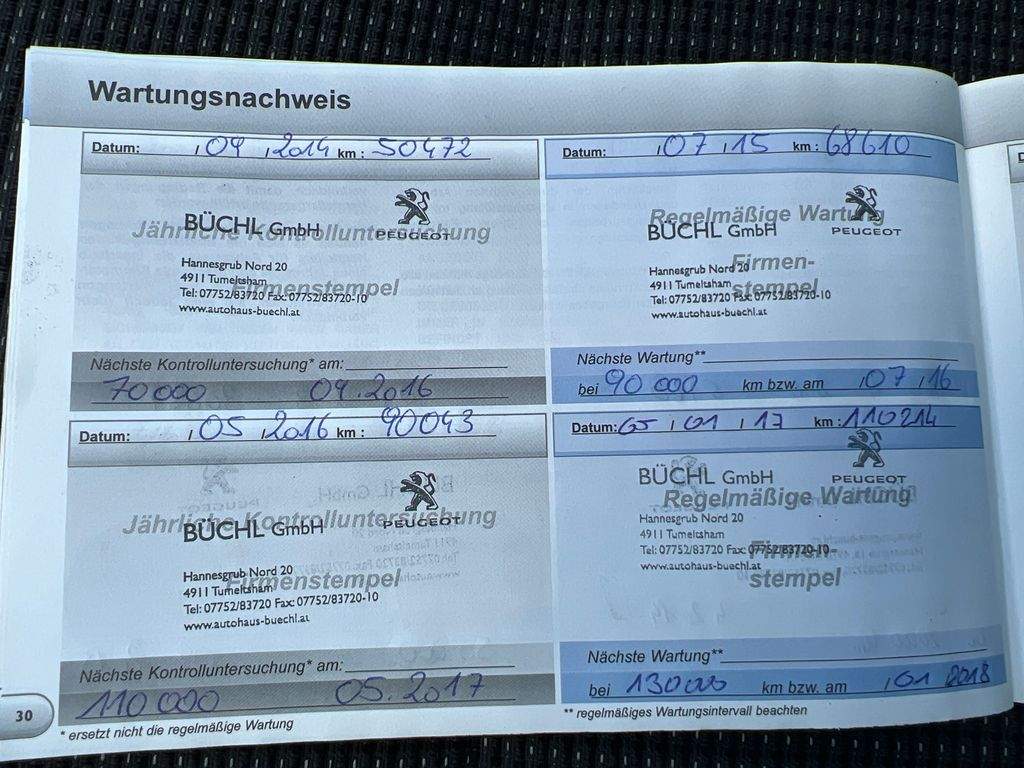 Wartungsnachweis
Datum: , 04 , 2014 km : 50472
BÜCHL GmbH PEUGEOT
Jährliche Kontrolluntersuchung
Hannesgrub Nord 20
4911 Tumeltsham
Firmenstempel
Tel: 07752/83720 Fax: 07752/83720-10
www.autohaus-buechl.at
Nächste Kontrolluntersuchung* am:
70000 04.2016
Datum: , 07 , 15 km : 68610
Regelmäßige Wartung
BÜCHL GmbH PEUGEOT
Firmen-
stempel
Hannesgrub Nord 20
4911 Tumeltsham
Tel: 07752/83720 Fax: 07752/83720-10
www.autohaus-buechl.at
Nächste Wartung**
bei 90 000 km bzw. am , 07 , 16
Datum: , 05 , 2016 km : 90043
Jährliche Kontrolluntersuchung
BÜCHL GmbH PEUGEOT
Hannesgrub Nord 20
4911 Tumeltsham
Firmenstempel
Tel: 07752/83720 Fax: 07752/83720-10
www.autohaus-buechl.at
Nächste Kontrolluntersuchung* am:
110 000 05.2017
Datum: , 01 , 17 km : 110214
BÜCHL GmbH PEUGEOT
Regelmäßige Wartung
Hannesgrub Nord 20
4911 Tumeltsham
Tel: 07752/83720 Fax: 07752/83720-10
www.autohaus-buechl.at
Firmen-
stempel
Nächste Wartung**
bei 130000 km bzw. am , 01 , 2018
30
* ersetzt nicht die regelmäßige Wartung
** regelmäßiges Wartungsintervall beachten